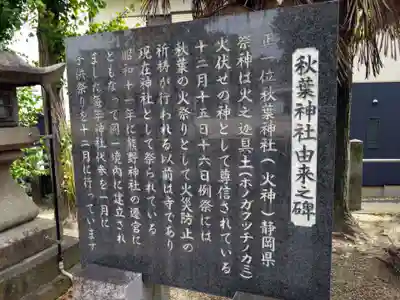 秋葉神社由来之碑
正一位秋葉神社(火神)静岡県
祭神は火之迦具土(ホノカクツチノカミ)
火伏せの神として尊信されている
十二月十五日十六日例祭には
秋葉の火祭りとして火災防止の
祈祷が行われる以前は寺であり
現在神社として祭られている
昭和十一年に熊野神社の遷宮に
ともなって同一境内に建立され
ました毎年神社代参を一月に
子供祭りを十二月に行っています